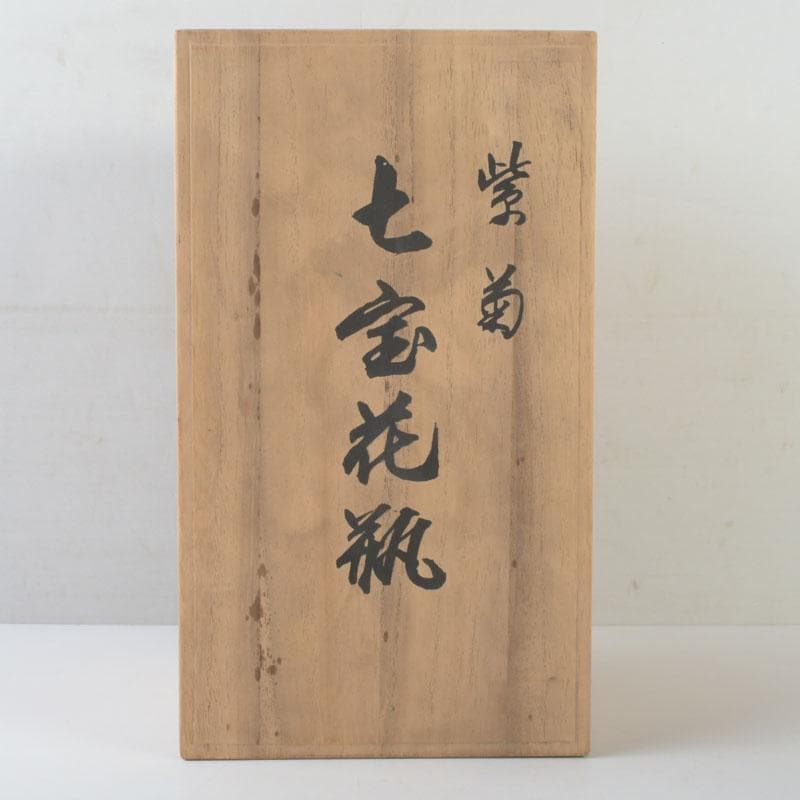 紫菊
七宝花瓶